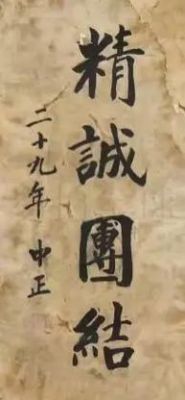 精誠團結
二十九年 中正